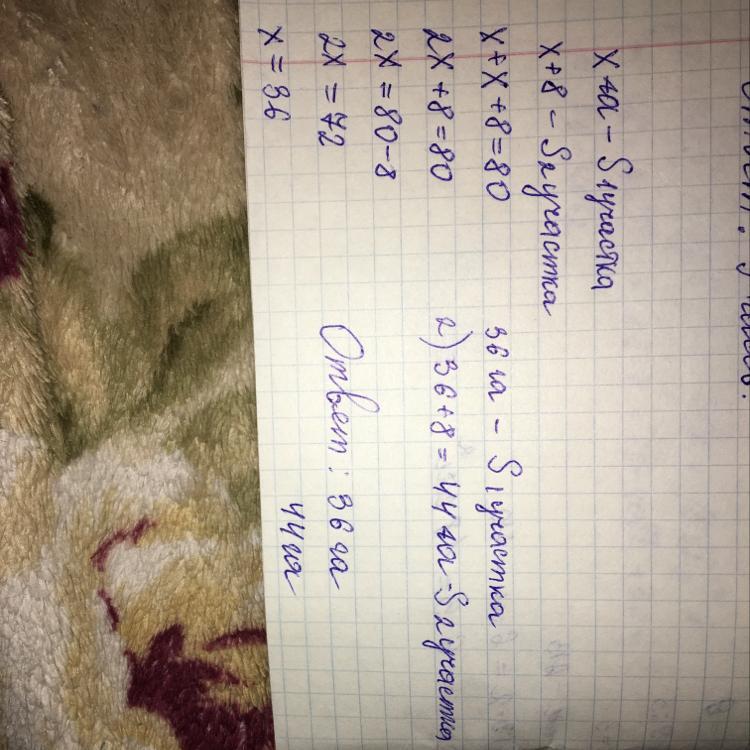 Ответ:
x га - S 1 участка
x+8 - S 2 участка
x+x+8=80
2x+8=80
2x=80-8
2x=72
x=36
36 га - S 1 участка
2) 36+8=44 га - S 2 участка
Ответ: 36 га
44 га